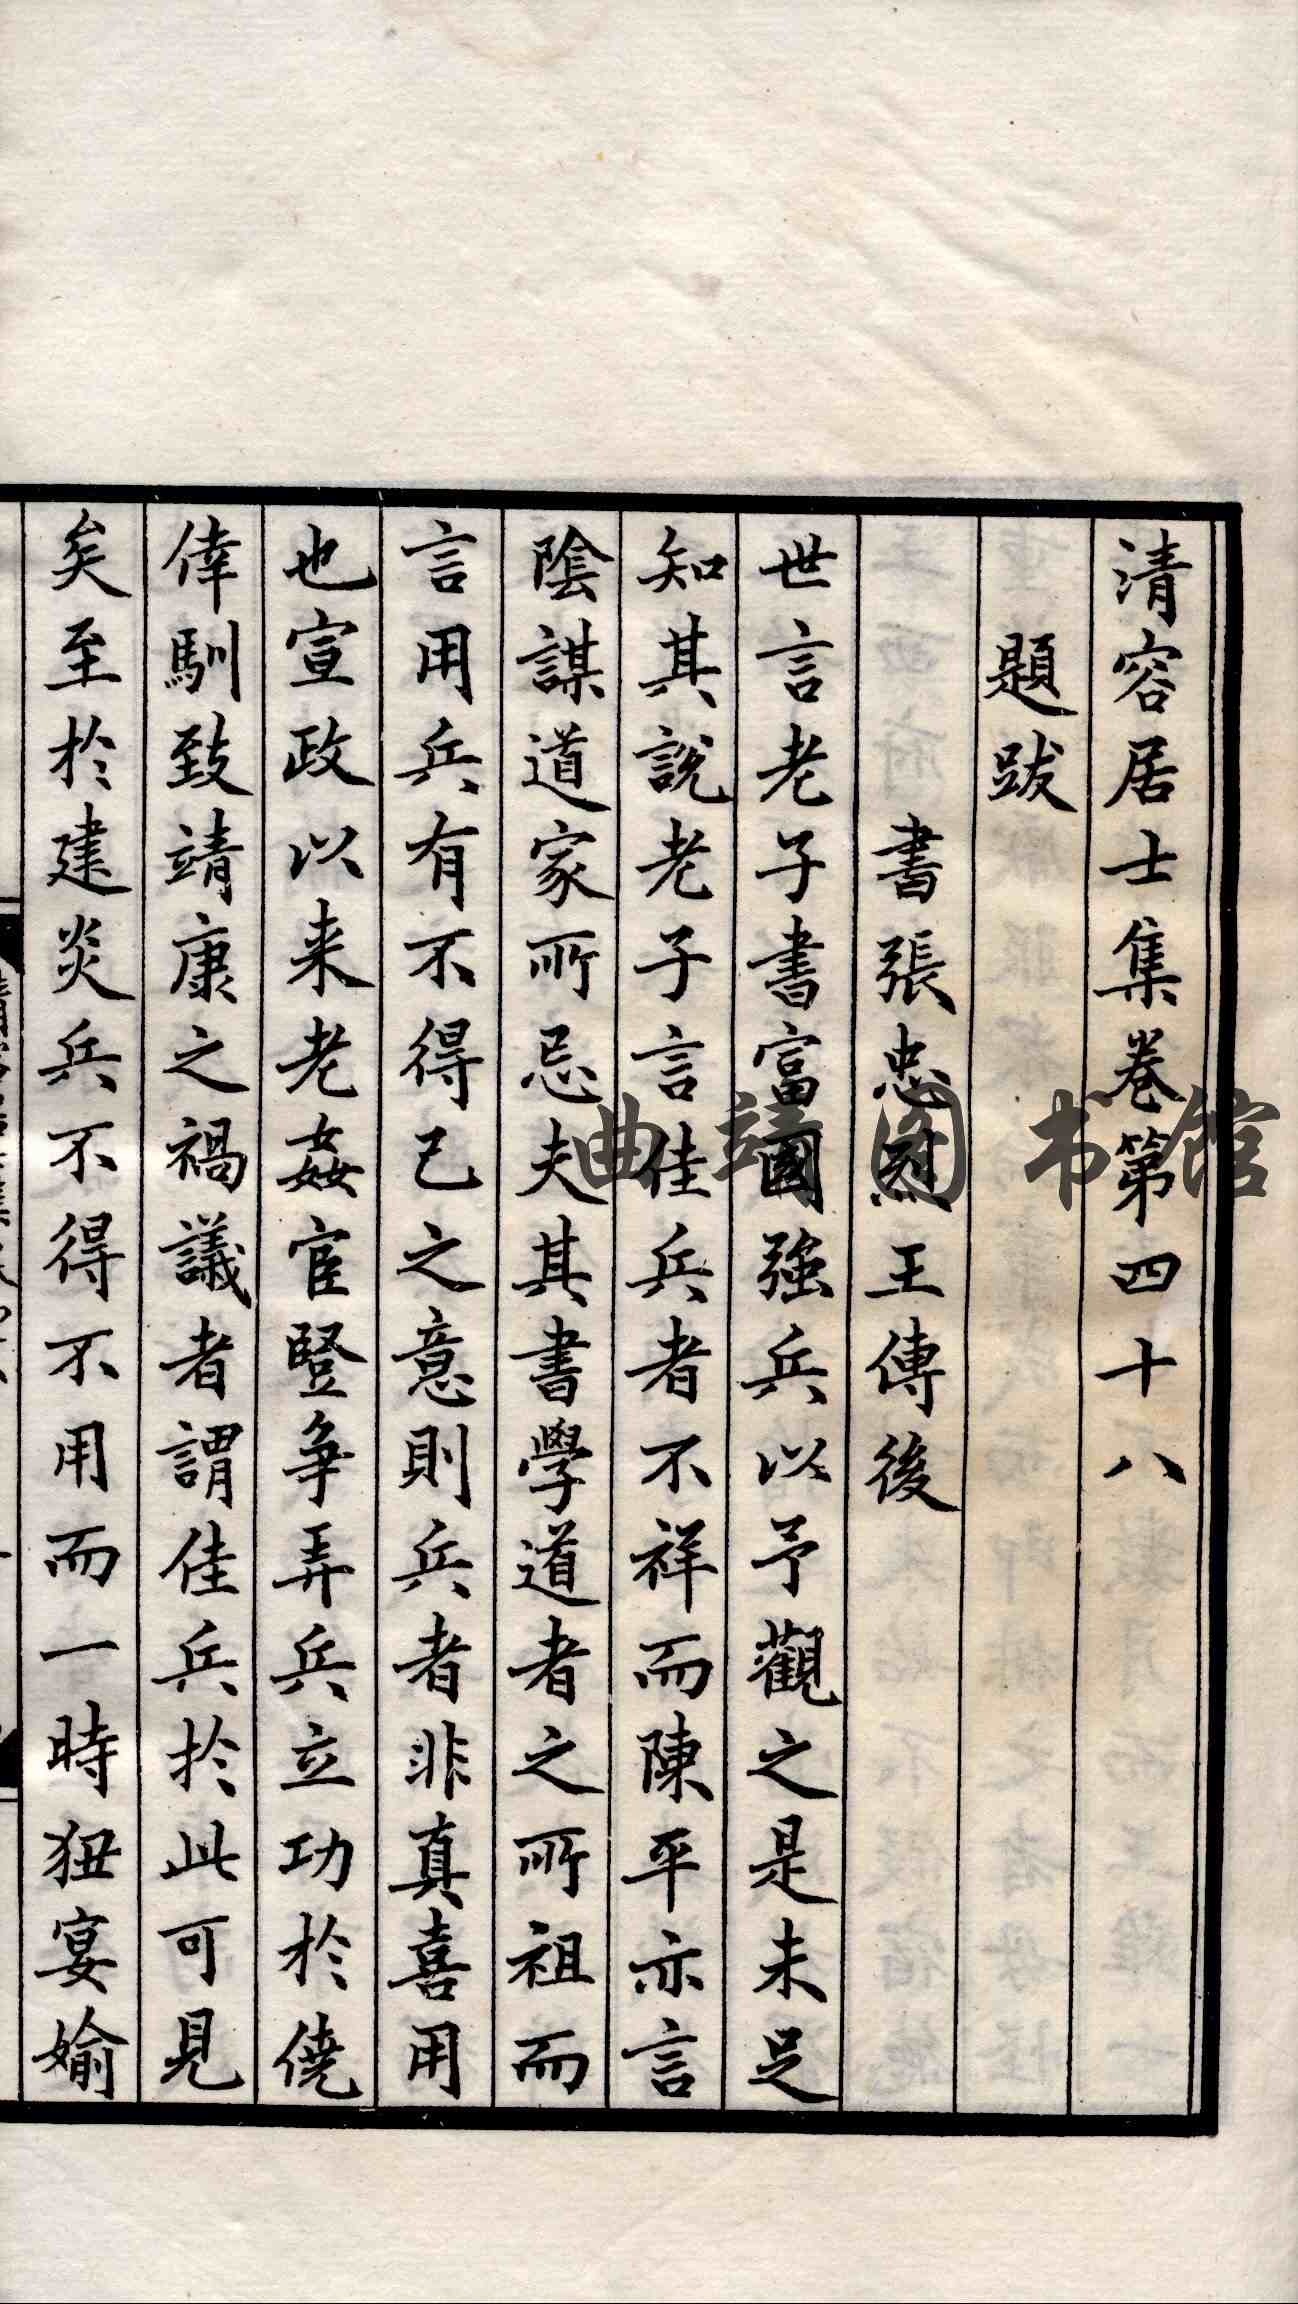 清容居士集卷第四十八
題跋
書張忠烈王傳後
世言老子書富國強兵以予觀之是未足
知其說老子言佳兵者不祥而陳平亦言
陰謀道家所忌夫其書學道者之所祖而
言用兵有不得已之意則兵者非真喜用
也宣政以来老姦宦豎争弄兵立功於僥
倖馴致靖康之禍議者謂佳兵於此可見
矣至於建炎兵不得不用而一時狃宴婾
曲靖图书馆